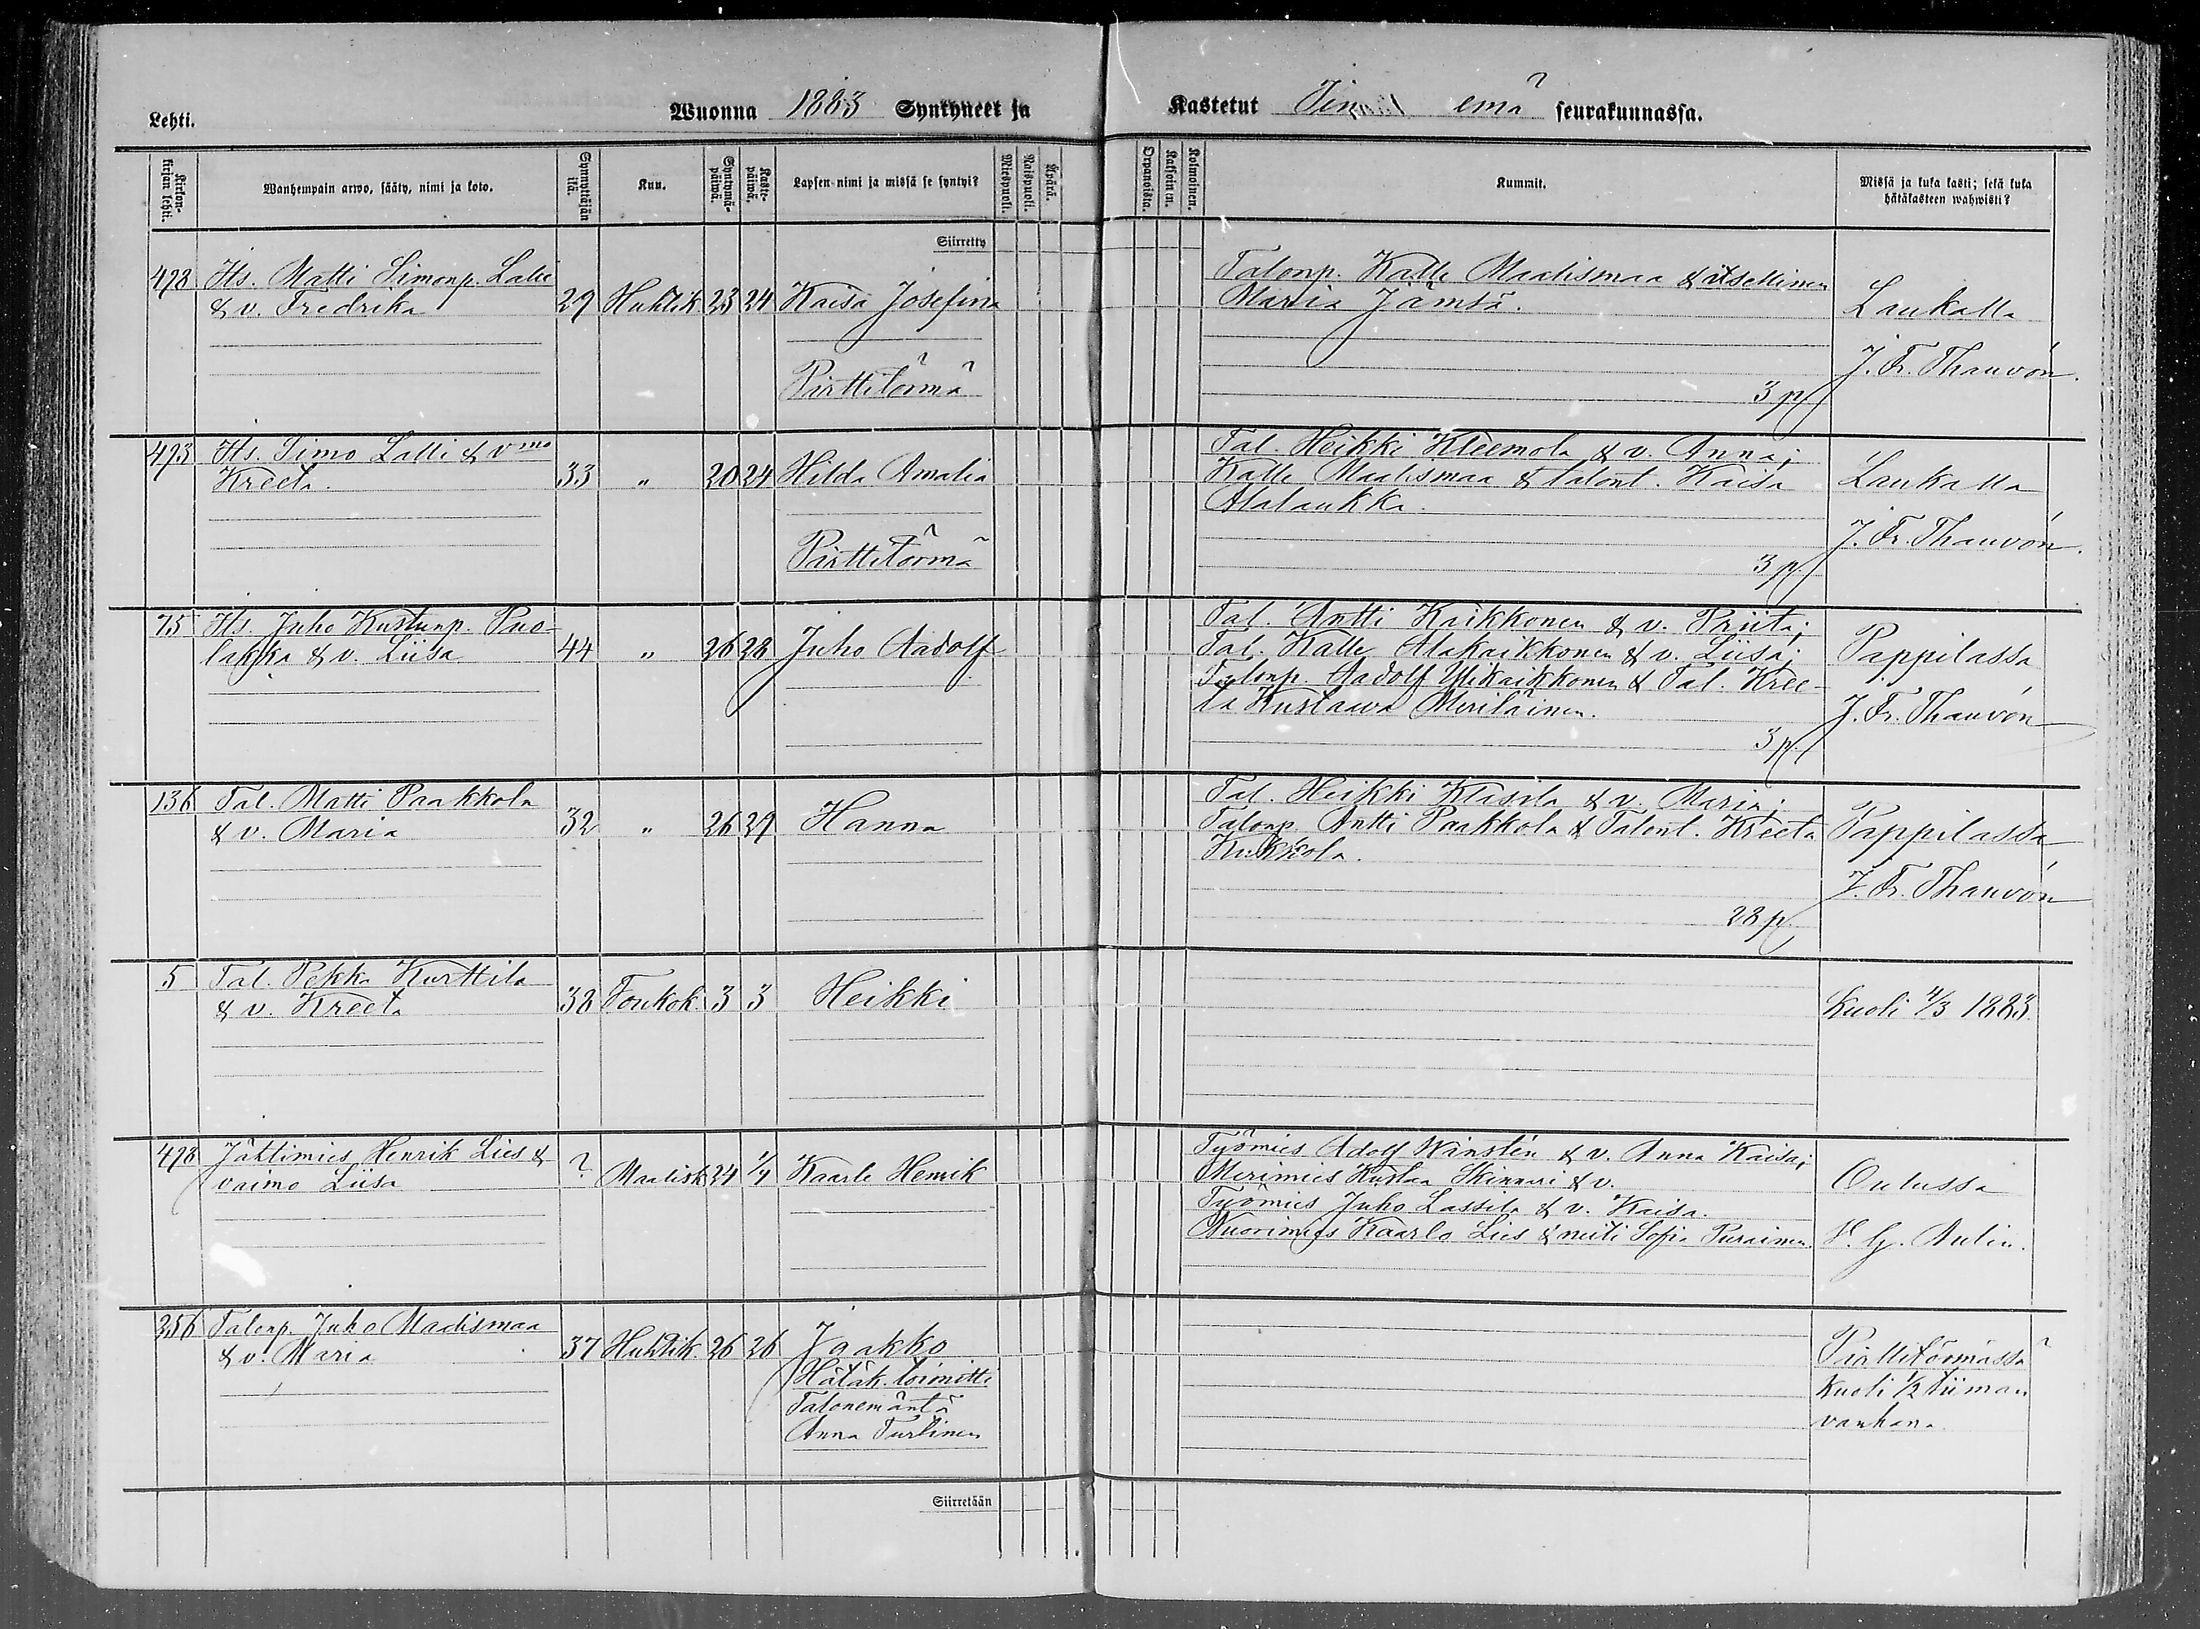 Lehti.
Wuonna 1883 Syntyneet ja
Kastetut emä seurakunnassa.
Kirkonkirjan lehti.
Wanhempain arwo, sääty, nimi ja koto.
Synnyttäjän ikä.
Kuu.
Syntymäpäiwä.
Kastepäiwä.
Lapsen nimi ja missä se syntyi?
Miespuoli.
Naispuoli.
Äpärä.
Orpanoista.
Kaksoinen.
Kolmoinen.
Kummit.
Missä ja kuka kasti; sekä kuka
hätäkasteen wahwisti?
Siirretty
498 Hs. Matti Simonp. Lalli
& v. Fredrika 29 Huhtik. 23 24 Kaisa Josefina
Pirttitörmä
Talonp. Kalle Maalismaa & itsellinen
Maria Jämsä.
3 p.
Laukalla
J. Fr. Thauvón.
493 Hs. Simo Lalli & vmo
Kreeta. 33 " 20 24 Hilda Amalia
Pirttitörmä
Tal. Heikki Kleemola & v. Anna;
Kalle Maalismaa & talont. Kaisa
Alalaukka.
3 p.
Laukalla
J. Fr. Thauvón.
75 Hs. Juho Kustunp. Puo-
lakka & v. Liisa 44 " 26 28 Juho Aadolf
Tal. Antti Kaikkonen & v. Priita;
Tal. Kalle Alakaikkonen & v. Liisa;
Talonp. Aadolf Ylikaikkonen & Tal. Kree-
ta Kustaava Meriläinen.
3 p.
Pappilassa
J. Fr. Thauvón
136 Tal. Matti Paakkola
& v. Maria 32 " 26 29 Hanna
Tal. Heikki Klasila & v. Maria;
Talonp. Antti Paakkola & Talont. Kreeta
Kukkola.
28 p.
Pappilassa
J. Fr. Thauvón
5 Tal. Pekka Kurttila
& v. Kreeta 38 Toukok. 3 3 Heikki
Kuoli 4/3 1883.
498 Jahtimies Henrik Lies &
vaimo Liisa ? Maalisk. 24 1/4 Kaarle Henrik
Työmies Adolf Winstén & v. Anna Kaisa;
Merimies Kustaa Skinnari & v.
Työmies Juho Lassila & v. Kaisa.
Nuorimies Kaarlo Lies & neiti Sofia Purainen.
Oulussa
Aulin.
256 Talonp. Juho Maalismaa
& v. Maria 37 Huhtik. 26 26 Jaakko
Hätäk. toimitti
Talonemäntä
Anna Turtinen
Pirttitörmässä
Kuoli 1/2 tiiman
vanhana.
Siirretään